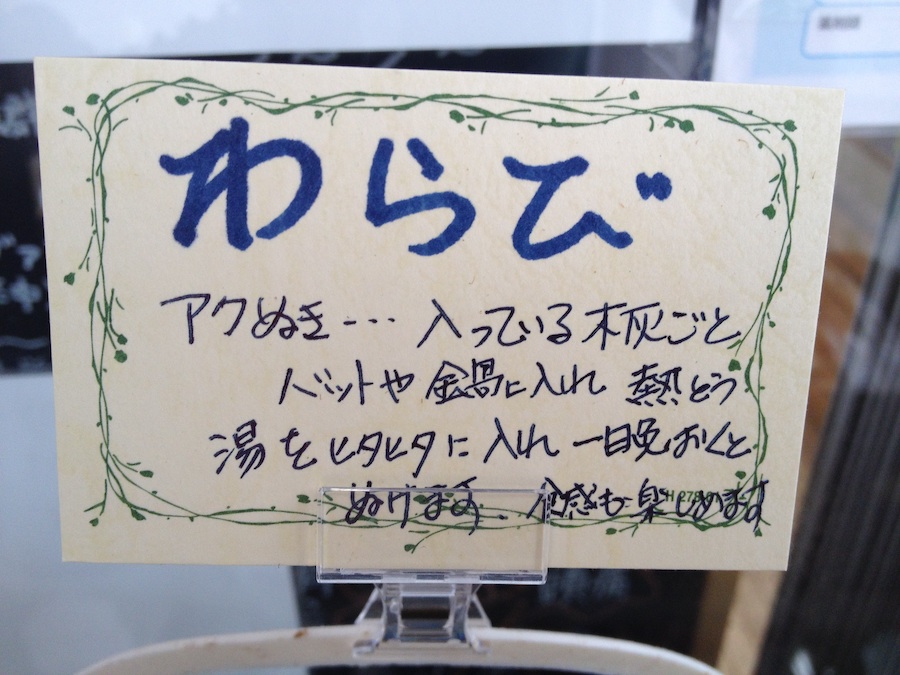 わらび
アクぬき・・・入っている木灰ごと
バットや鍋に入れ 熱とう
湯をヒタヒタに入れ一日晩おくと
ぬけます、食感も楽しめます